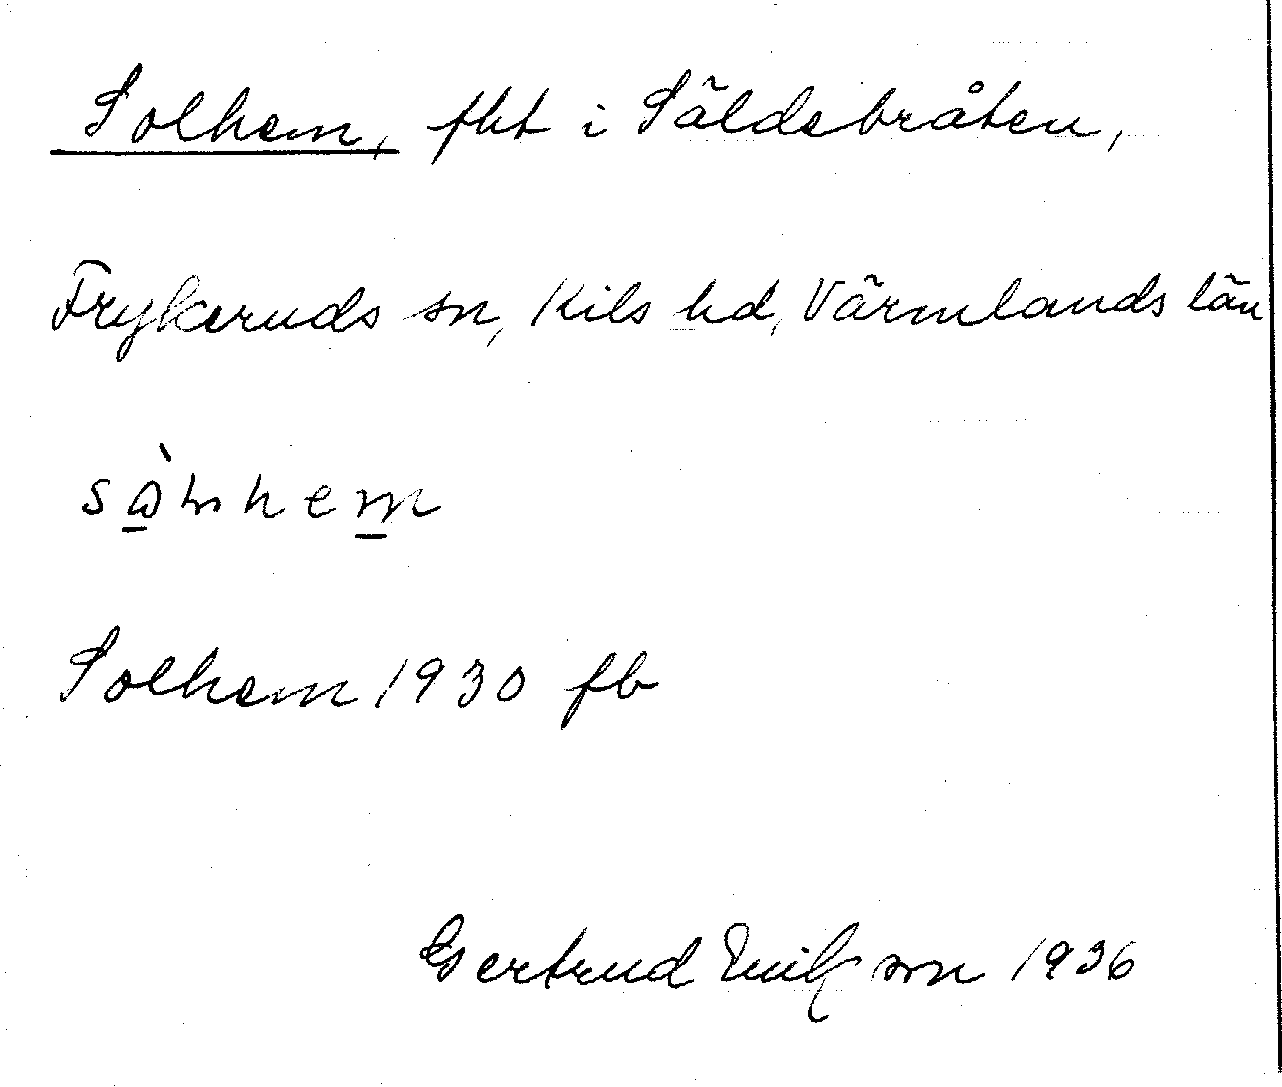 Solhem, fht i Säldebråten,
Frykeruds sn, Kils hd, Värmlands län
Solhem 1930 fb
Gertrud Eriksson 1936